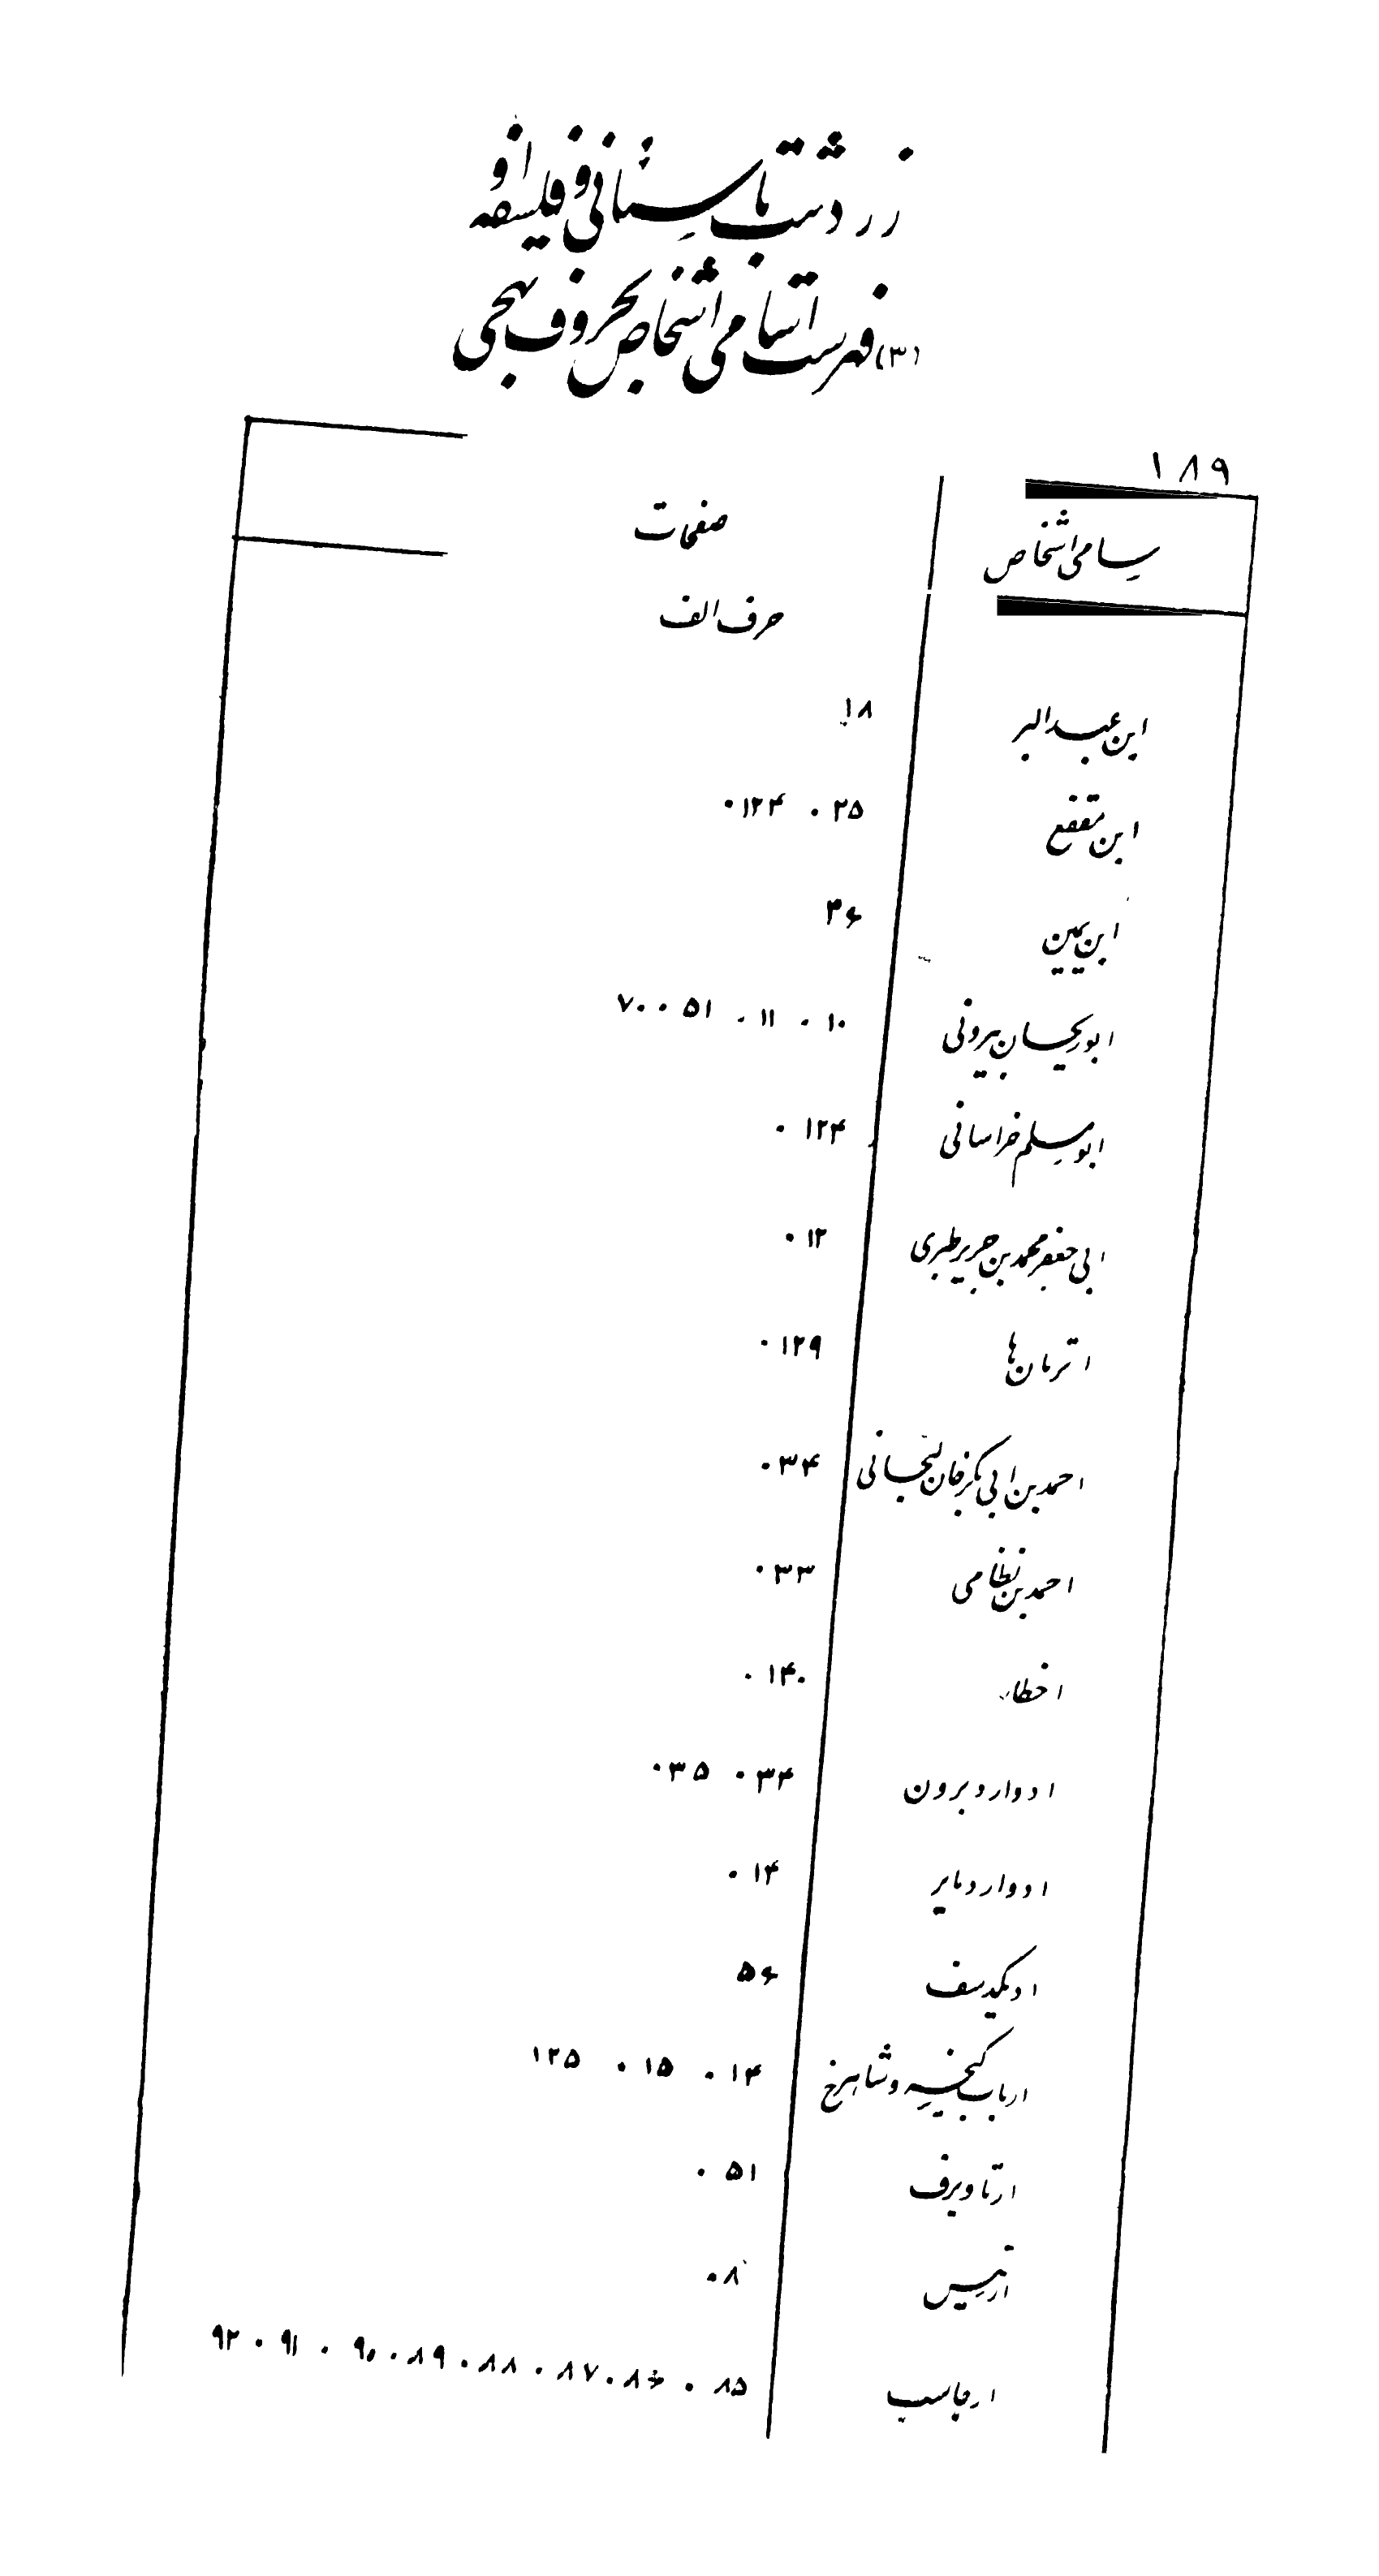 زردشت باستانی و فلسفه او
(۳) فهرست اسامی اشخاص بحروف تهجی
۱۸۹
اسامی اشخاص صفحات
حرف الف
ابن عبدالبر ۱۸
ابن مقفع ۲۵ . ۱۲۴ .
ابن یمین ۳۶
ابوریحان بیرونی ۱۰ . ۱۱ . ۵۱ . ۷۰
ابومسلم خراسانی ۱۲۴ .
ابی جعفر محمد بن جریر طبری ۱۲ .
اترمان‌ها ۱۲۹ .
احمد بن ابی بکر خان لنجانی ۳۴ .
احمد بن نظامی ۳۳ .
اخطار ۱۴۰ .
ادوارد برون ۳۴ . ۳۵ .
ادوارد مایر ۱۴ .
۵۶
ارباب کیخسرو شاهرخ ۱۴ . ۱۵ . ۱۲۵
ارتاویرف ۵۱ .
۸ .
ارجاسب ۸۵ . ۸۶ . ۸۷ . ۸۸ . ۸۹ . ۹۰ . ۹۱ . ۹۲